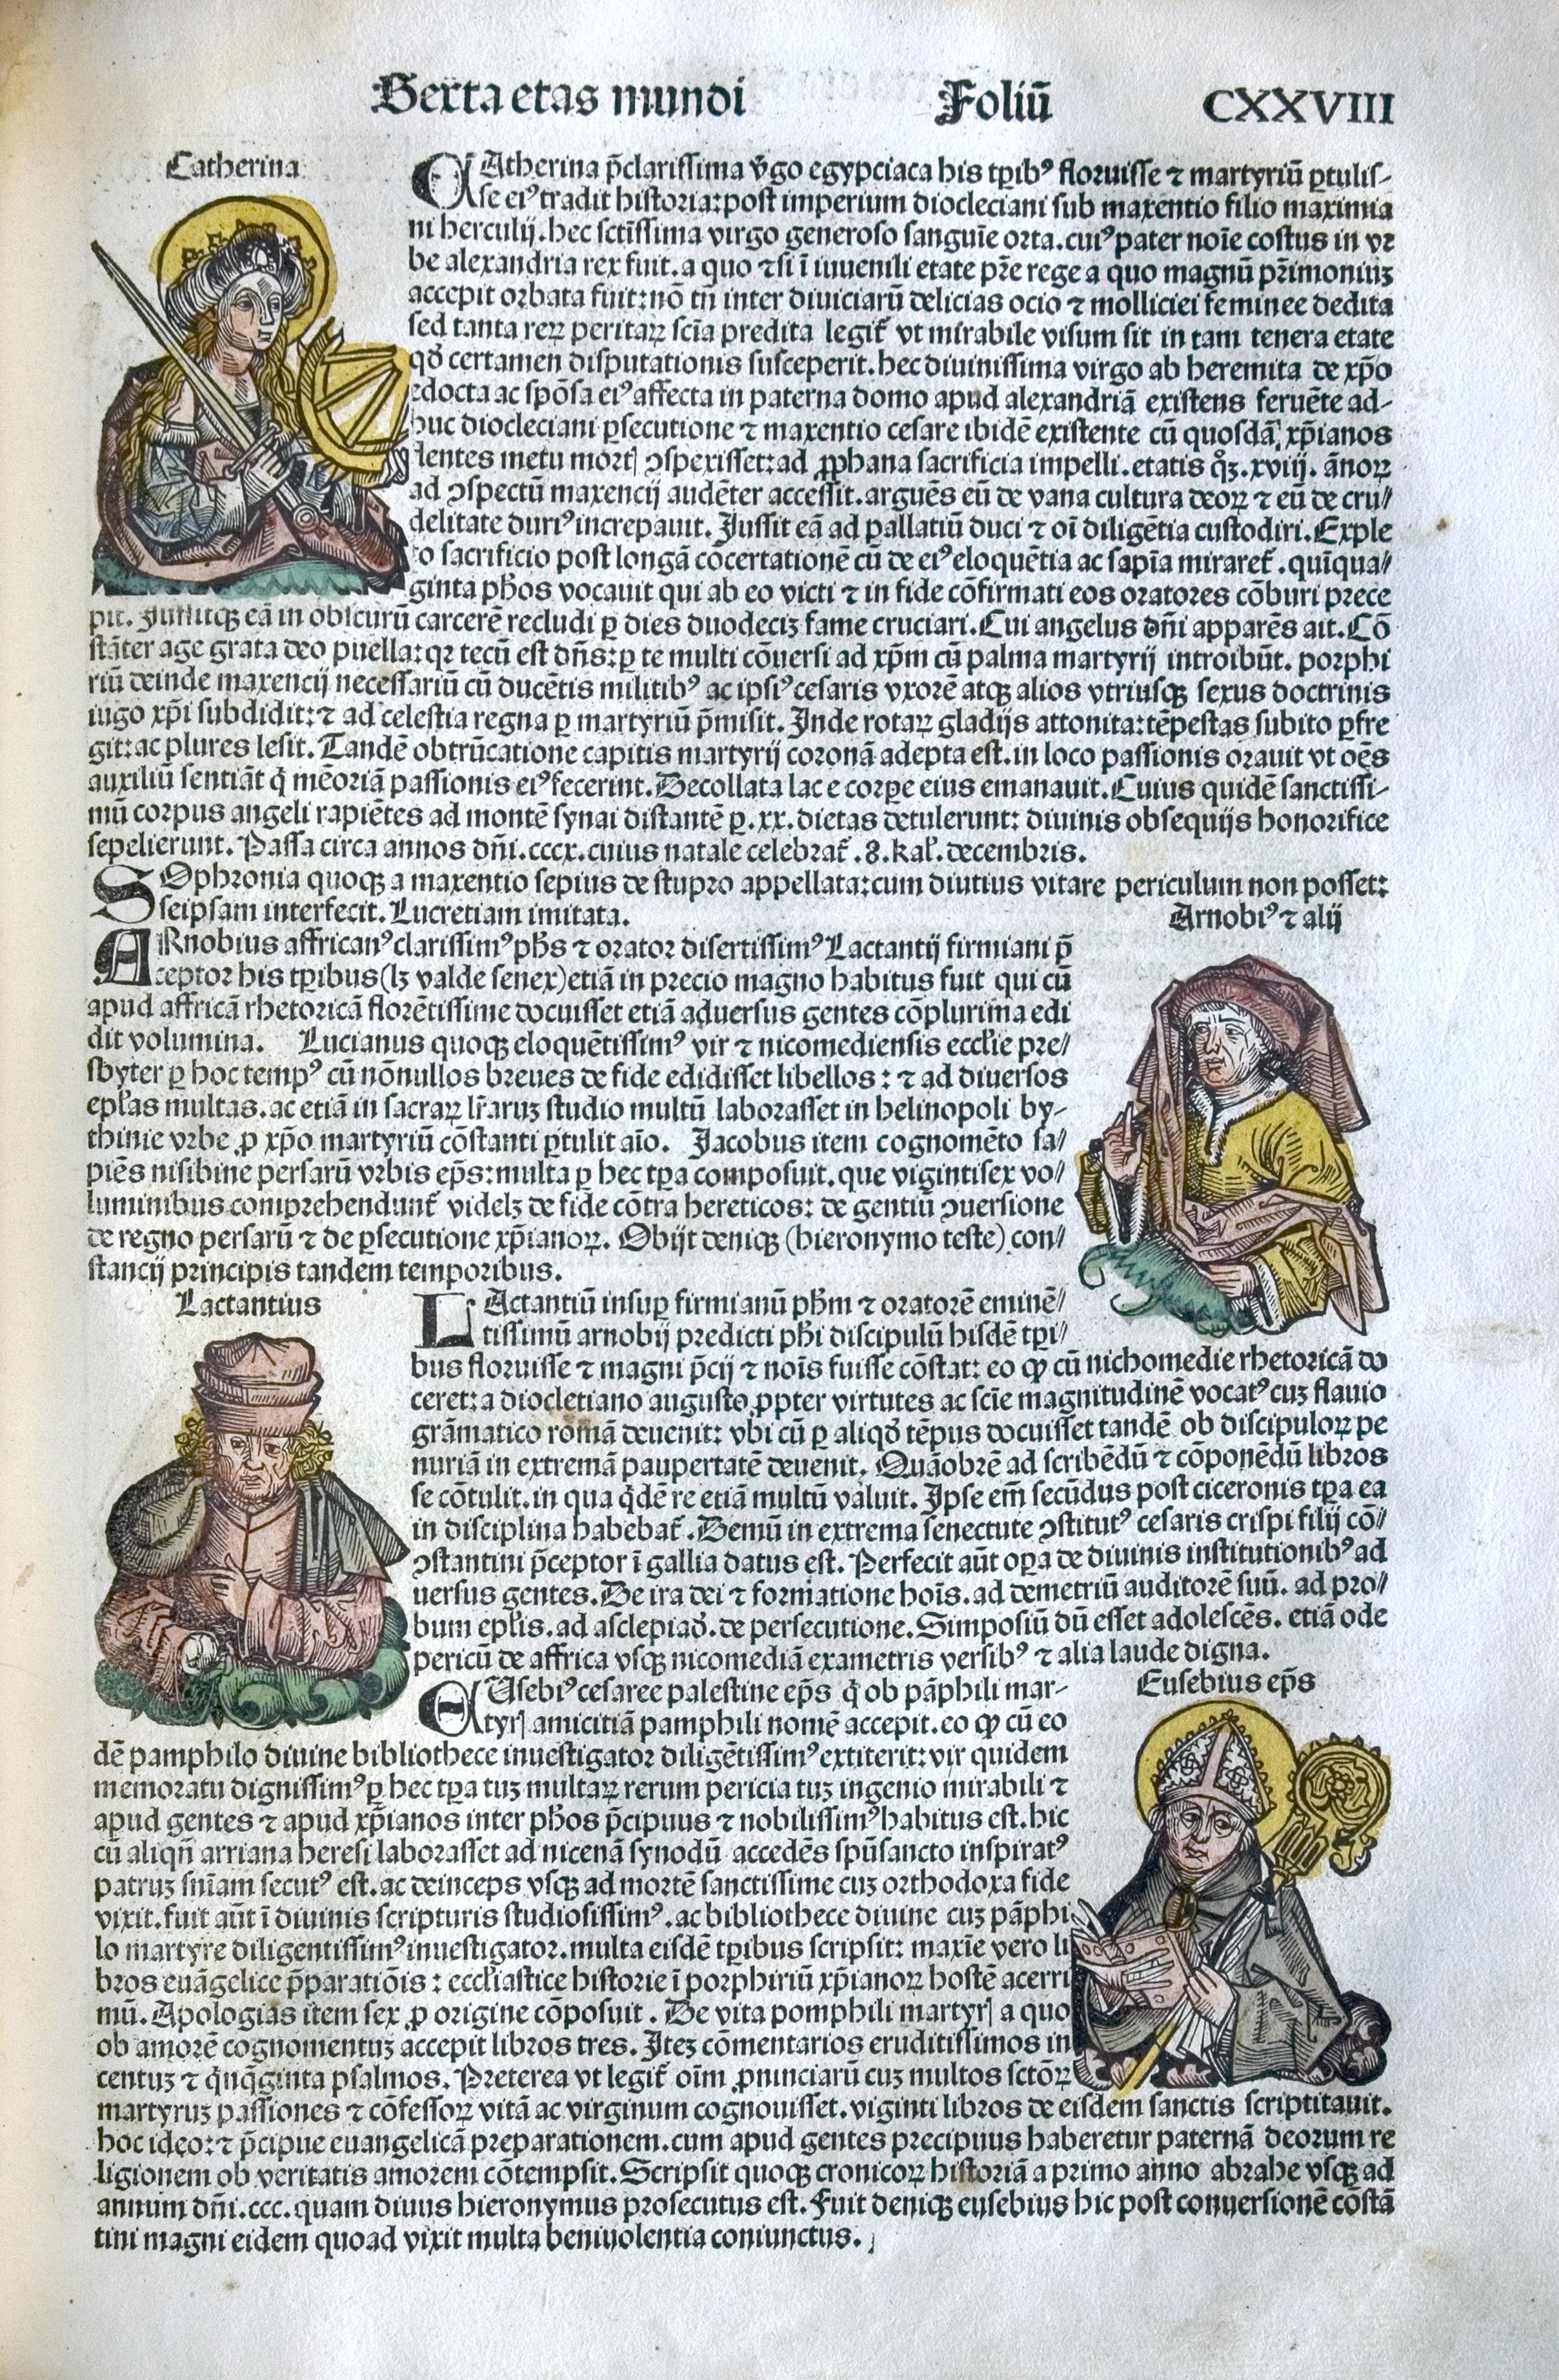 Sexta etas mundi Foliū CXXVIII
Catherina
CAtherina p̄clarissima v̄go egypciaca his tp̄ibꝰ floruisse ⁊ martyriū ꝑtulis-
se eiꝰ tradit historia: post imperium diocleciani sub maxentio filio maximia
ni herculij. hec sctīssima virgo generoso sanguīe orta. cuiꝰ pater noīe costus in vr
be alexandria rex fuit. a quo ⁊ si ī iuuenili etate pr̄e rege a quo magnū pr̄imoniuꝫ
accepit orbata fuit: nō tn̄ inter diuiciarū delicias ocio ⁊ molliciei feminee dedita
sed tanta reꝝ peritaꝝ sc̄ia predita legit᷑ vt mirabile visum sit in tam tenera etate
qđ certamen disputationis susceperit. hec diuinissima virgo ab heremita de xp̄o
edocta ac spōsa eiꝰ affecta in paterna domo apud alexandriā existens feruēte ad-
huc diocleciani ꝑsecutione ⁊ maxentio cesare ibidē existente cū quosdā xp̄ianos
lentes metu mortꝭ ꝯspexisset: ad ꝓphana sacrificia impelli. etatis qꝫ. xviij. ānoꝝ
ad ꝯspectū maxencij audēter accessit. arguēs eū de vana cultura deoꝝ ⁊ eū de cru/
delitate duriꝰ increpauit. Jussit eā ad pallatiū duci ⁊ oī diligētia custodiri. Exple
to sacrificio post longā cōcertationē cū de eiꝰ eloquētia ac sapīa miraret᷑. quīqua/
ginta ph̄os vocauit qui ab eo victi ⁊ in fide cōfirmati eos oratores cōburi prece
pit. Jussitqꝫ eā in obscurū carcerē recludi ꝑ dies duodeciꝫ fame cruciari. Cui angelus dn̄i apparēs ait. Cō
stāter age grata deo puella: qꝛ tecū est dn̄s: ꝑ te multi cōuersi ad xp̄m cū palma martyrij introibūt. porphi
riū deinde maxencij necessariū cū ducētis militibꝰ ac ipsiꝰ cesaris vxorē atqꝫ alios vtriusqꝫ sexus doctrinis
iugo xp̄i subdidit: ⁊ ad celestia regna ꝑ martyriū p̄misit. Inde rotaꝝ gladijs attonita: tēpestas subito ꝑfre
git: ac plures lesit. Tandē obtrūcatione capitis martyrij coronā adepta est. in loco passionis orauit vt oēs
auxiliū sentiāt q̇ mēoriā passionis eiꝰ fecerint. Decollata lac e corꝑe eius emanauit. Cuius quidē sanctissi-
mū corpus angeli rapiētes ad montē synai distantē ꝑ. xx. dietas detulerunt: diuinis obsequijs honorifice
sepelierunt. Passa circa annos dn̄i. cccx. cuius natale celebrat᷑. 8. kal̄. decembris.
SOphronia quoqꝫ a maxentio sepius de stupro appellata: cum diutius vitare periculum non posset:
seipsam interfecit. Lucretiam imitata.
Arnobiꝰ ⁊ alij
ARnobius affricanꝰ clarissimꝰ ph̄s ⁊ orator disertissimꝰ Lactantij firmiani p̄
ceptor his tp̄ibus (lꝫ valde senex) etiā in precio magno habitus fuit qui cū
apud affricā rhetoricā florētissime docuisset etiā aduersus gentes cōplurima edi
dit volumina. Lucianus quoqꝫ eloquētissimꝰ vir ⁊ nicomediensis eccl̄ie pre/
sbyter ꝑ hoc tempꝰ cū nōnullos breues de fide edidisset libellos: ⁊ ad diuersos
epl̄as multas. ac etiā in sacraꝝ lr̄aruꝫ studio multū laborasset in helinopoli by-
thinie vrbe ꝓ xp̄o martyriū cōstanti ꝑtulit aīo. Jacobus item cognomēto sa/
piēs nisibine persarū vrbis ep̄s: multa ꝑ hec tp̄a composuit. que vigintisex vo/
luminibus comprehendunt᷑ videlꝫ de fide cōtra hereticos: de gentiū ꝯuersione
de regno persarū ⁊ de ꝑsecutione xp̄ianoꝝ. Obijt deniqꝫ (hieronymo teste) con/
stancij principis tandem temporibus.
Lactantius
LActantiū insuꝑ firmianū ph̄m ⁊ oratorē eminē/
tissimū arnobij predicti ph̄i discipulū hisdē tp̄i/
bus floruisse ⁊ magni p̄cij ⁊ nois̄ fuisse cōstat: eo ꝙ cū nichomedie rhetoricā do
ceret: a diocletiano augusto ꝓpter virtutes ac sc̄ie magnitudinē vocatꝰ cuꝫ flauio
grāmatico romā deuenit: vbi cū ꝑ aliqđ tēpus docuisset tandē ob discipuloꝝ pe
nuriā in extremā paupertatē deuenit. Quāobrē ad scribēdū ⁊ cōponēdū libros
se cōtulit. in qua q̇dē re etiā multū valuit. Ipse em̄ secūdus post ciceronis tp̄a ea
in disciplina habebat᷑. Demū in extrema senectute ꝯstitutꝰ cesaris crispi filij cō/
ꝯstantini p̄ceptor ī gallia datus est. Perfecit aūt oꝑa de diuinis institutionibꝰ ad
uersus gentes. De ira dei ⁊ formatione hoīs. ad demetriū auditorē suū. ad pro/
bum epl̄is. ad asclepiađ. de persecutione. Simposiū dū esset adolescēs. etiā ode
pericū de affrica vsqꝫ nicomediā exametris versibꝰ ⁊ alia laude digna.
Eusebius ep̄s
EUsebiꝰ cesaree palestine ep̄s q̇ ob pāphili mar-
tyrꝭ amicitiā pamphili nomē accepit. eo ꝙ cū eo
dē pamphilo diuine bibliothece inuestigator diligētissimꝰ extiterit: vir quidem
memoratu dignissimꝰ ꝑ hec tp̄a tuꝫ multaꝝ rerum pericia tuꝫ ingenio mirabili ⁊
apud gentes ⁊ apud xp̄ianos inter ph̄os p̄cipuus ⁊ nobilissimꝰ habitus est. hic
cū aliqn̄ arriana heresi laborasset ad nicenā synodū accedēs spūsancto inspiratꝰ
patruꝫ sn̄iam secutꝰ est. ac deinceps vsqꝫ ad mortē sanctissime cuꝫ orthodoxa fide
vixit. fuit aūt ī diuinis scripturis studiosissimꝰ. ac bibliothece diuine cuꝫ pāphi
lo martyre diligentissimꝰ inuestigator. multa eisdē tp̄ibus scripsit: maxīe vero li
bros euāgelice p̄paratiōis: eccl̄iastice historie ī porphiriū xp̄ianoꝝ hostē acerri
mū. Apologias item sex ꝓ origine cōposuit. De vita pomphili martyrꝭ a quo
ob amorē cognomentuꝫ accepit libros tres. Iteꝫ cōmentarios eruditissimos in
centuꝫ ⁊ q̇nq̄ginta psalmos. Preterea vt legit᷑ oīm ꝓuinciarū cuꝫ multos sctōꝝ
martyruꝫ passiones ⁊ cōfessoꝝ vitā ac virginum cognouisset. viginti libros de eisdem sanctis scriptitauit.
hoc ideo: ⁊ p̄cipue euangelicā preparationem. cum apud gentes precipuus haberetur paternā deorum re
ligionem ob veritatis amorem cōtempsit. Scripsit quoqꝫ cronicoꝝ historiā a primo anno abrahe vsqꝫ ad
annum dn̄i. ccc. quam diuus hieronymus prosecutus est. Fuit deniqꝫ eusebius hic post conuersionē cōstā
tini magni eidem quoad vixit multa beniuolentia coniunctus.